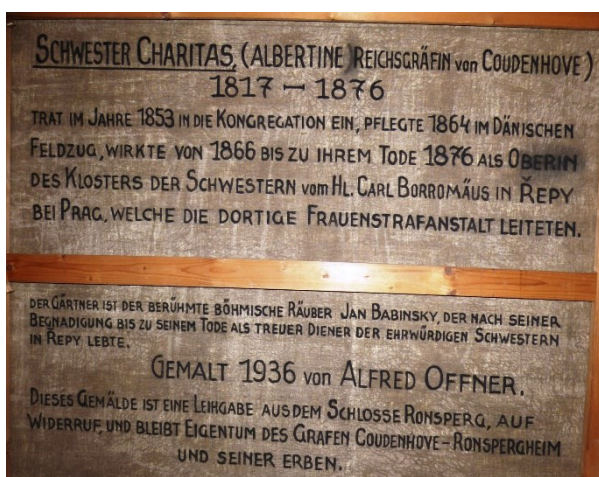 SCHWESTER CHARITAS, (ALBERTINE) REICHSGRÄFIN von COUDENHOVE)
1817 — 1876
TRAT IM JAHRE 1853 IN DIE KONGREGATION EIN, PFLEGTE 1864 IM DÄNISCHEN
FELDZUG, WIRKTE VON 1866 BIS ZU IHREM TODE 1876 ALS OBERIN
DES KLOSTERS DER SCHWESTERN vom HL. CARL BORROMÄUS IN ŘEPY
BEI PRAG, WELCHE DIE DORTIGE FRAUENSTRAFANSTALT LEITETEN.
DER GÄRTNER IST DER BERÜHMTE BÖHMISCHE RÄUBER JAN BABINSKY, DER NACH SEINER
BEGNADIGUNG BIS ZU SEINEM TODE ALS TREUER DIENER DER EHRWÜRDIGEN SCHWESTERN
IN ŘEPY LEBTE.
GEMALT 1936 von ALFRED OFFNER.
DIESES GEMÄLDE IST EINE LEIHGABE AUS DEM SCHLOSSE RONSPERG, AUF
WIDERRUF, UND BLEIBT EIGENTUM DES GRAFEN COUDENHOVE-RONSPERGHEIM
UND SEINER ERBEN.